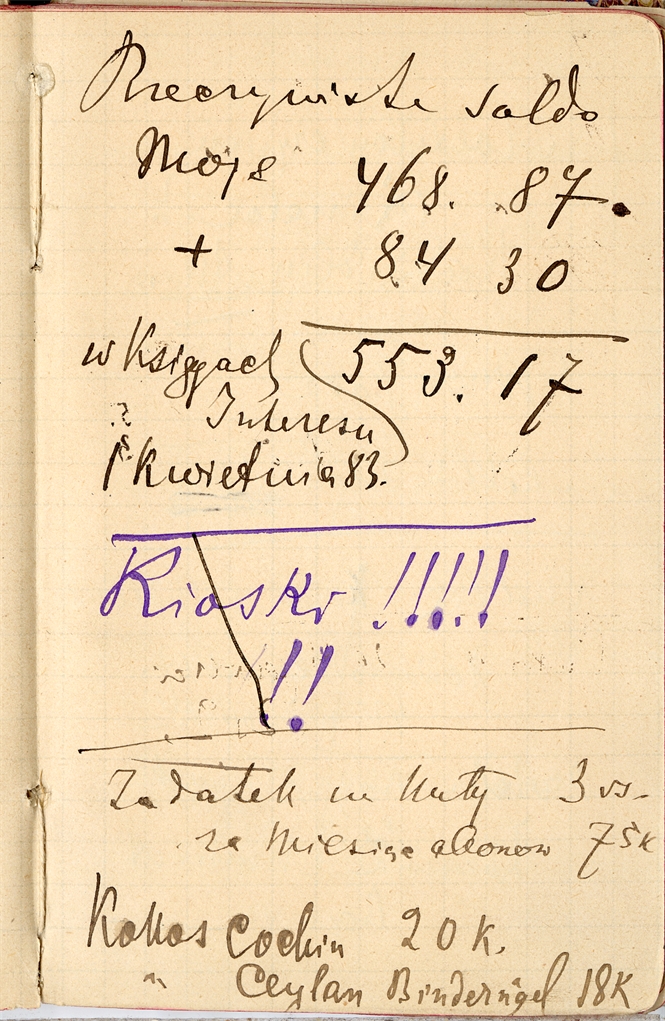 Rzeczywiste saldo
Moje 468. 87.
+ 84 30
w Księgach 553. 17
Interesu
1 Kwietnia 83.
Kioski !!!!!
!!
Zadatek na Nuty 3 rs.
za Miesiąc abonow 75 k
Kokos Cochin 20 k.
" Ceylan Bindernagel 18 k